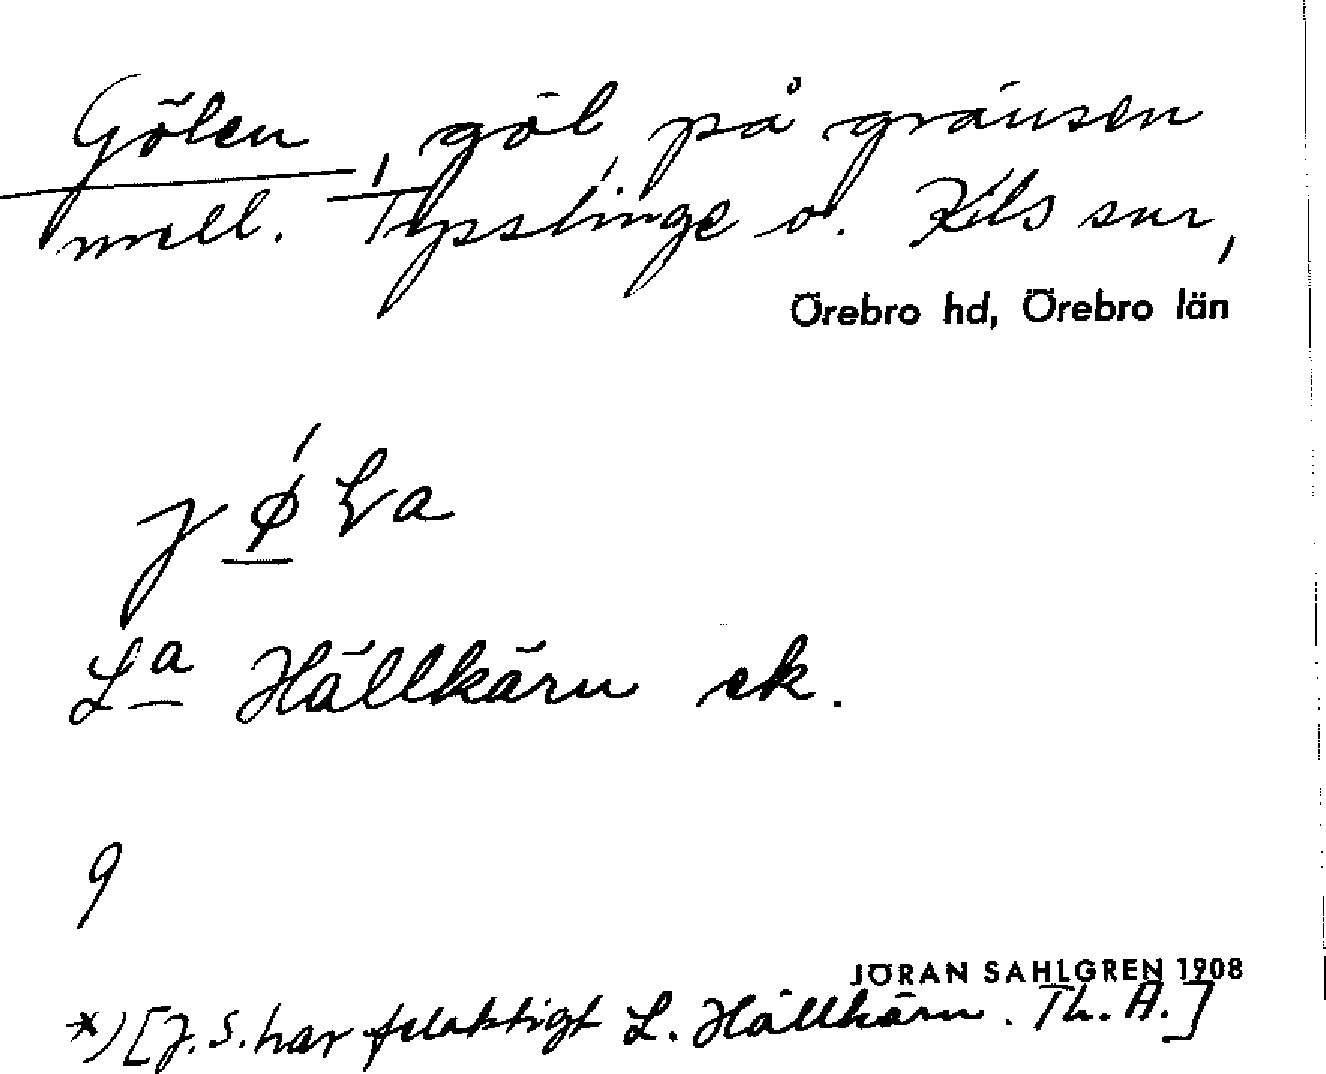 Gölen, göl på gränsen
mell. Tysslinge o. Kils snr,
Örebro hd, Örebro län
La Hällkärn ek.
9
JÖRAN SAHLGREN 1908
*) [J. S. har felaktigt L. Hällkärn. Th. A.]